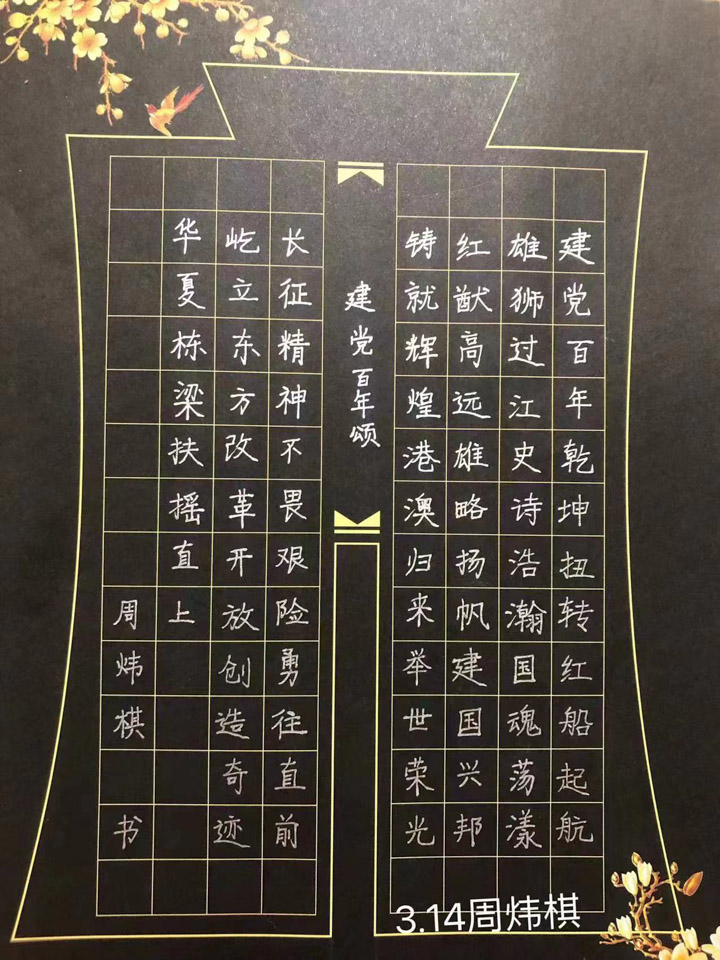 建党百年乾坤扭转红船起航
雄狮过江史诗浩瀚国魂荡漾
红猷高远雄略扬帆建国兴邦
铸就辉煌港澳归来举世荣光
建党百年颂
长征精神不畏艰险勇往直前
屹立东方改革开放创造奇迹
华夏栋梁扶摇直上
周炜棋 书
3.14周炜棋